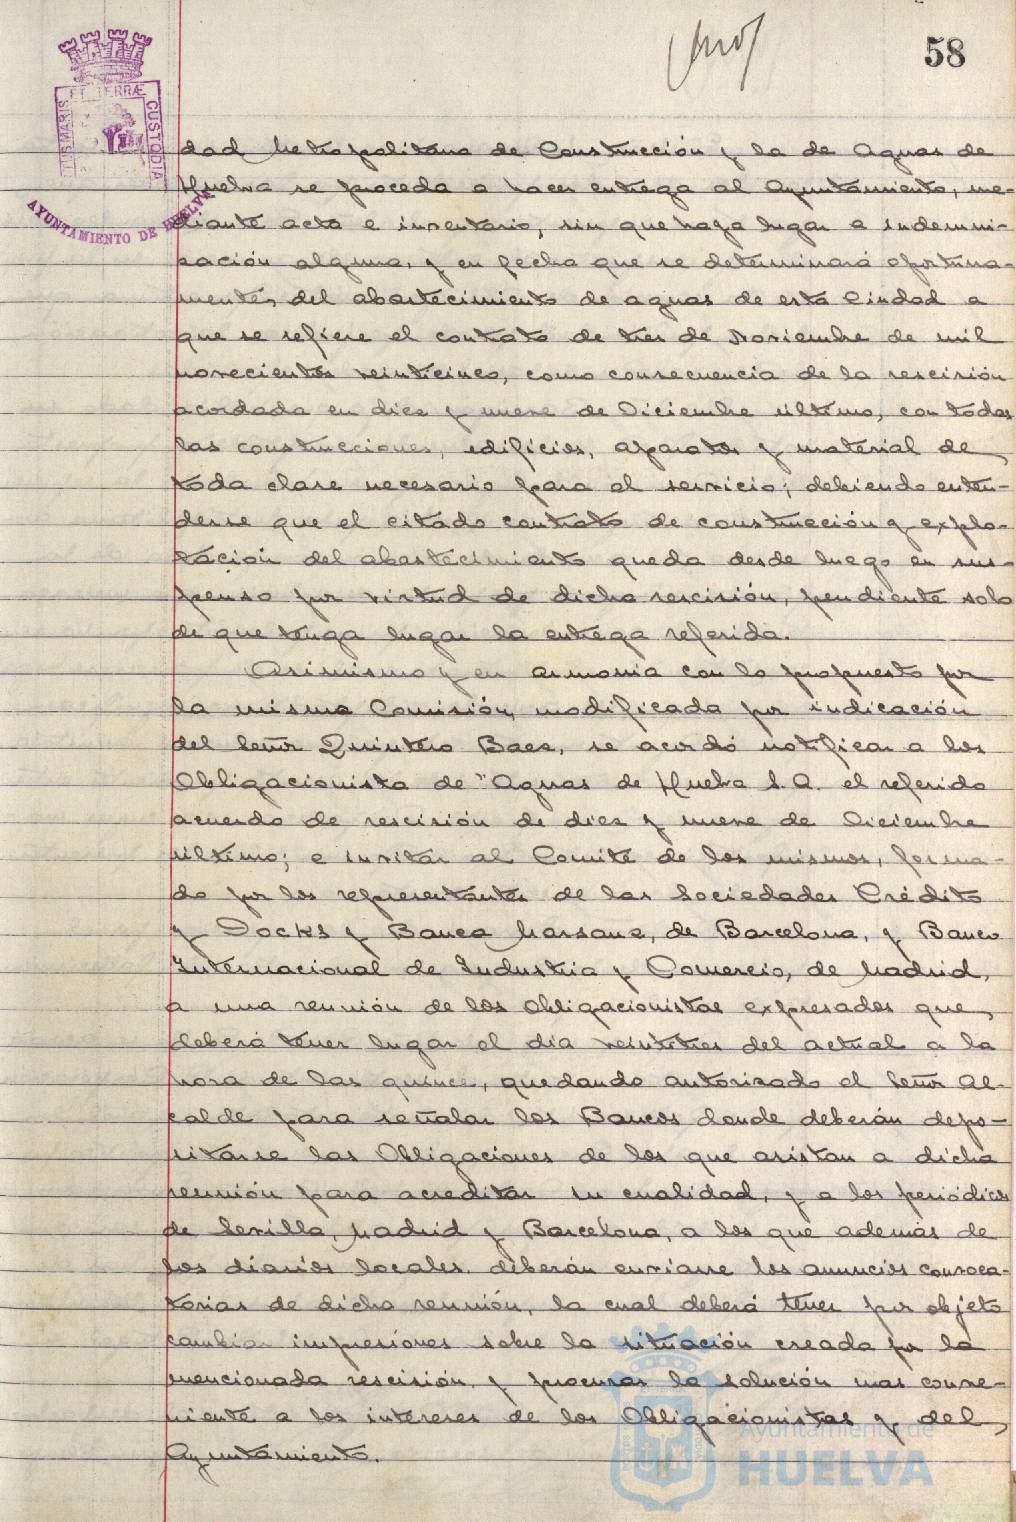 58
ET TERRÆ
US MARIS
CUSTODIA
AYUNTAMIENTO DE HUELVA
dad Metropolitana de Construcción y la de Aguas de
Huelva se proceda a hacer entrega al Ayuntamiento, me-
diante acta e inventario, sin que haya lugar a indemni-
zación alguna, y en fecha que se determinará oportuna-
mente, del abastecimiento de aguas de esta Ciudad a
que se refiere el contrato de tres de Noviembre de mil
novecientos veinticinco, como consecuencia de la rescisión
acordada en diez y nueve de Diciembre último, con todas
las construcciones, edificios, aparatos y material de
toda clase necesario para el servicio; debiendo enten-
derse que el citado contrato de construcción y explo-
tación del abastecimiento queda desde luego en sus-
penso por virtud de dicha rescisión, pendiente solo
de que tenga lugar la entrega referida.
Asimismo y en armonia con lo propuesto por
la misma Comisión, modificada por indicación
del Señor Quintero Baez, se acordó notificar a los
Obligacionista de "Aguas de Huelva S.A. el referido
acuerdo de rescisión de diez y nueve de Diciembre
último; e invitar al Comité de los mismos, forma-
do por los representantes de las Sociedades Crédito
y Docks y Banca Marsans, de Barcelona, y Banco
Internacional de Industria y Comercio, de Madrid,
a una reunión de los Obligacionistas expresados que,
deberá tener lugar el día veintitres del actual a la
hora de las quince, quedando autorizado el Señor Al-
calde para señalar los Bancos donde deberán depo-
sitarse las Obligaciones de los que asistan a dicha
reunión para acreditar su cualidad, y a los periódicos
de Sevilla, Madrid y Barcelona, a los que además de
los diarios locales deberán enviarse los anuncios convoca-
torias de dicha reunión, la cual deberá tener por objeto
cambiar impresiones sobre la situación creada por la
mencionada rescisión y procurar la solución mas conve-
niente a los intereses de los Obligacionistas y del
Ayuntamiento.
Ayuntamiento de
HUELVA